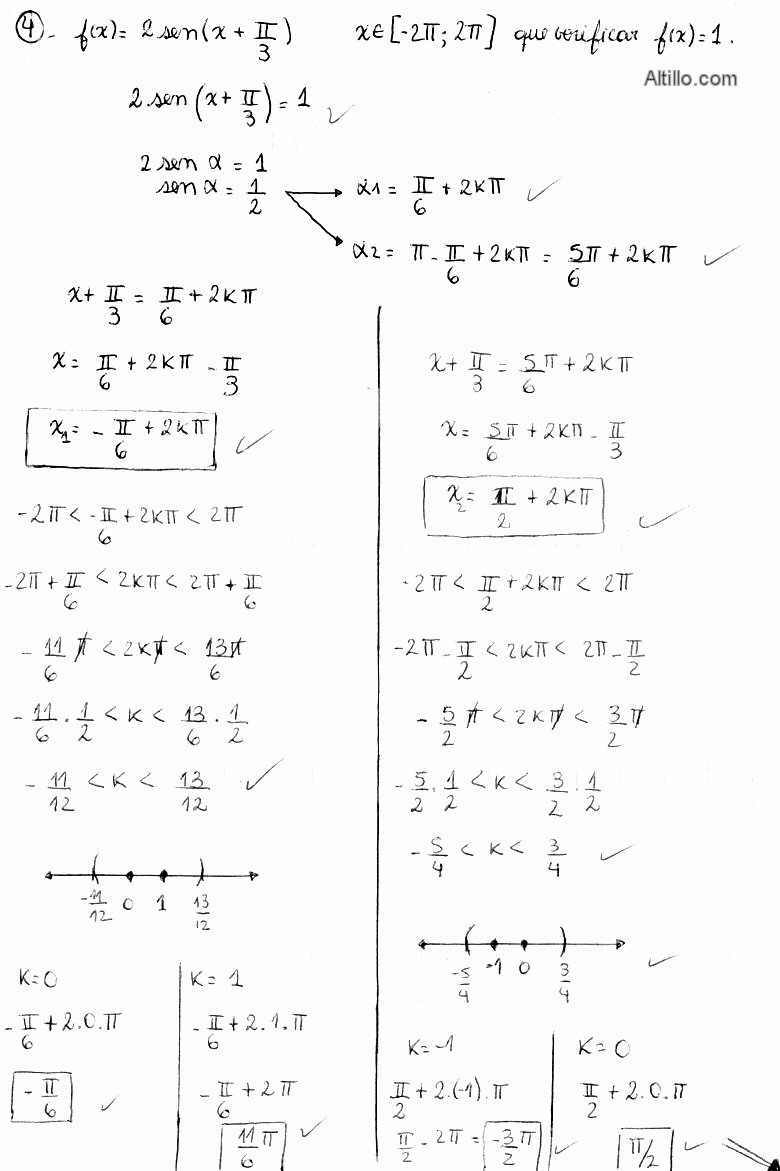 ④- f(x)= 2 sen(x + π/3)   x∈[-2π; 2π] que verificar f(x)=1.
Altillo.com
2 sen(x + π/3) = 1
2 sen α = 1
sen α = 1/2
α1 = π/6 + 2kπ
α2 = π - π/6 + 2kπ = 5π/6 + 2kπ
x + π/3 = π/6 + 2kπ
x = π/6 + 2kπ - π/3
x₁ = - π/6 + 2kπ
-2π < -π/6 + 2kπ < 2π
-2π + π/6 < 2kπ < 2π + π/6
- 11/6 π < 2kπ < 13π/6
- 11/6 . 1/2 < k < 13/6 . 1/2
- 11/12 < k < 13/12
-11/12 0 1 13/12
K=0
- π/6 + 2.0.π
- π/6
K= 1
- π/6 + 2.1.π
- π/6 + 2π
11/6 π
x + π/3 = 5π/6 + 2kπ
x = 5π/6 + 2kπ - π/3
x₂ = π/2 + 2kπ
-2π < π/2 + 2kπ < 2π
-2π - π/2 < 2kπ < 2π - π/2
- 5/2 π < 2kπ < 3/2 π
- 5/2 . 1/2 < k < 3/2 . 1/2
- 5/4 < k < 3/4
-5/4 -1 0 3/4
K=-1
π/2 + 2.(-1).π
π/2 - 2π = -3/2 π
K=0
π/2 + 2.0.π
π/2